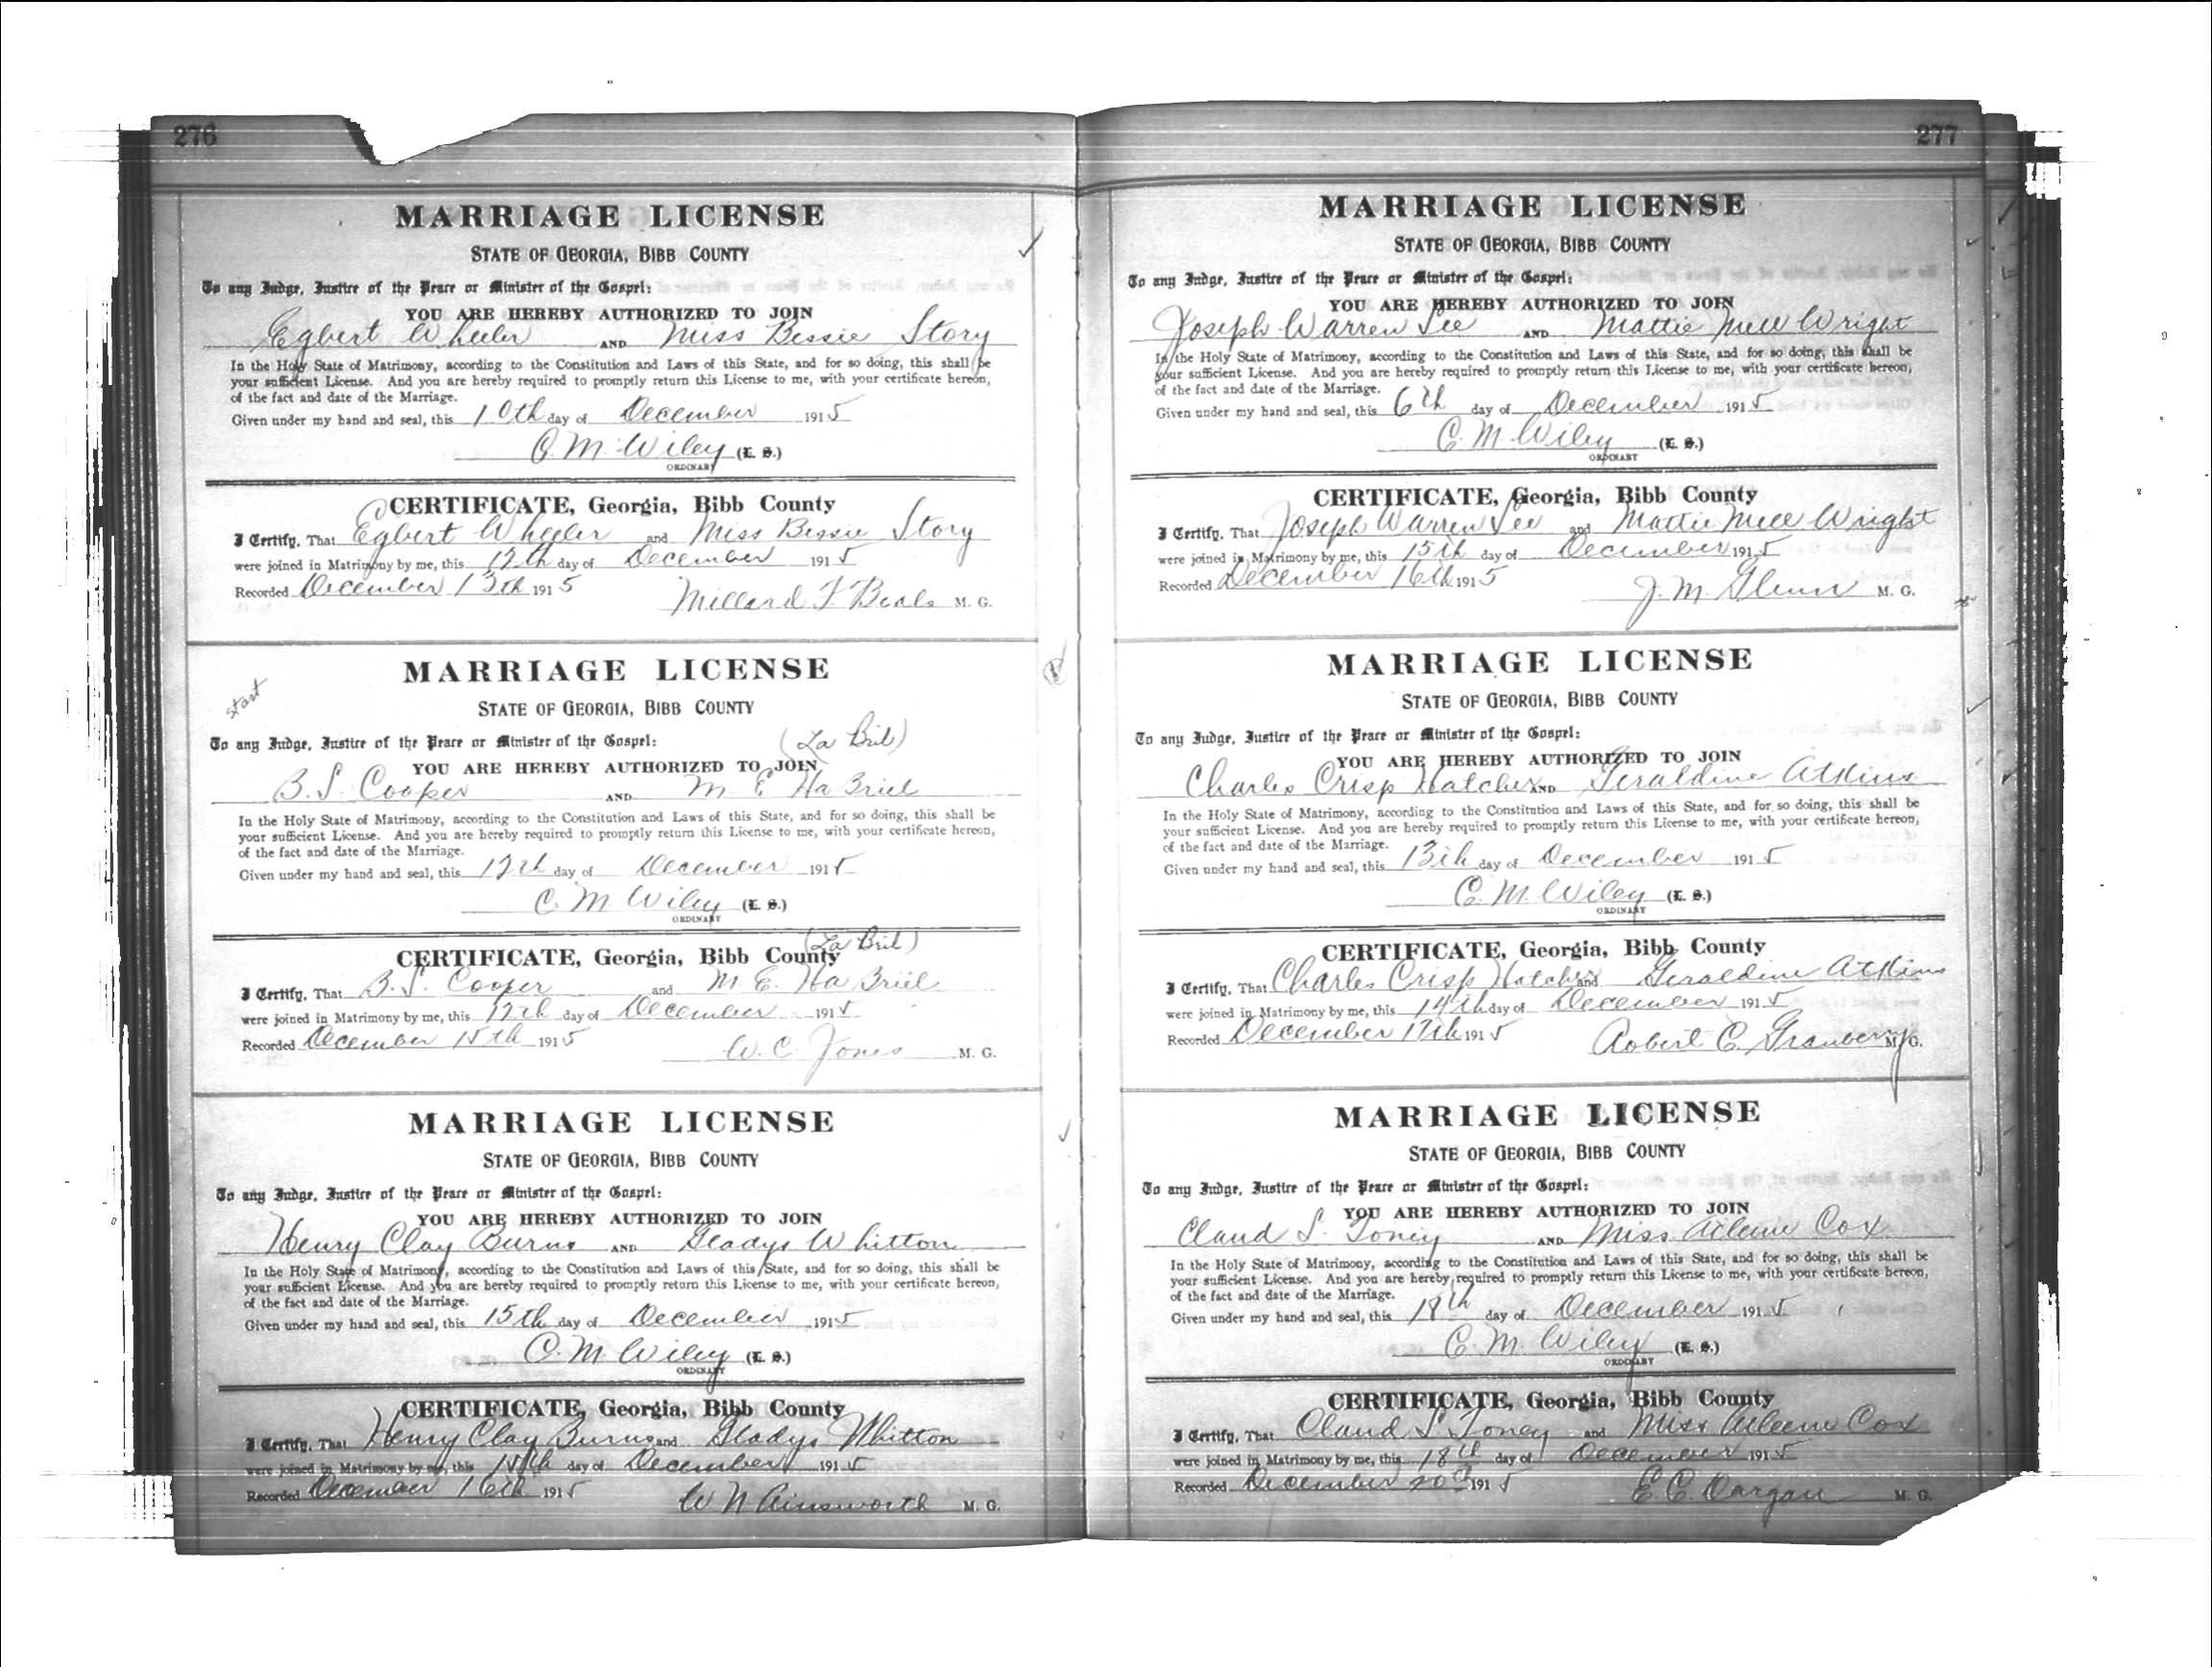 276
MARRIAGE LICENSE
STATE OF GEORGIA, BIBB COUNTY
To any Judge, Justice of the Peace or Minister of the Gospel:
YOU ARE HEREBY AUTHORIZED TO JOIN
Egbert Wheeler AND Miss Bessie Story
In the Holy State of Matrimony, according to the Constitution and Laws of this State, and for so doing, this shall be
your sufficient License. And you are hereby required to promptly return this License to me, with your certificate hereon,
of the fact and date of the Marriage.
Given under my hand and seal, this 10th day of December 1915
C. M. Wiley (L. S.)
ORDINARY
CERTIFICATE, Georgia, Bibb County
I Certify, That Egbert Wheeler and Miss Bessie Story
were joined in Matrimony by me, this 12th day of December 1915
Recorded December 13th 1915 Millard F. Beals M. G.
start
MARRIAGE LICENSE
STATE OF GEORGIA, BIBB COUNTY
To any Judge, Justice of the Peace or Minister of the Gospel: (La Bril)
YOU ARE HEREBY AUTHORIZED TO JOIN
B. S. Cooper AND M. E. Ha Briel
In the Holy State of Matrimony, according to the Constitution and Laws of this State, and for so doing, this shall be
your sufficient License. And you are hereby required to promptly return this License to me, with your certificate hereon,
of the fact and date of the Marriage.
Given under my hand and seal, this 12th day of December 1915
C. M. Wiley (L. S.)
ORDINARY
(La Bril)
CERTIFICATE, Georgia, Bibb County
I Certify, That B. S. Cooper and M. E. Ha Briel
were joined in Matrimony by me, this 12th day of December 1915
Recorded December 15th 1915 W. C. Jones M. G.
MARRIAGE LICENSE
STATE OF GEORGIA, BIBB COUNTY
To any Judge, Justice of the Peace or Minister of the Gospel:
YOU ARE HEREBY AUTHORIZED TO JOIN
Henry Clay Burns AND Gladys Whitton
In the Holy State of Matrimony, according to the Constitution and Laws of this State, and for so doing, this shall be
your sufficient License. And you are hereby required to promptly return this License to me, with your certificate hereon,
of the fact and date of the Marriage.
Given under my hand and seal, this 15th day of December 1915
C. M. Wiley (L. S.)
ORDINARY
CERTIFICATE, Georgia, Bibb County
I Certify, That Henry Clay Burns and Gladys Whitton
were joined in Matrimony by me, this 15th day of December 1915
Recorded December 16th 1915 W N Ainsworth M. G.
277
MARRIAGE LICENSE
STATE OF GEORGIA, BIBB COUNTY
To any Judge, Justice of the Peace or Minister of the Gospel:
YOU ARE HEREBY AUTHORIZED TO JOIN
Joseph Warren Lee AND Mattie Mell Wright
In the Holy State of Matrimony, according to the Constitution and Laws of this State, and for so doing, this shall be
your sufficient License. And you are hereby required to promptly return this License to me, with your certificate hereon,
of the fact and date of the Marriage.
Given under my hand and seal, this 6th day of December 1915
C. M. Wiley (L. S.)
ORDINARY
CERTIFICATE, Georgia, Bibb County
I Certify, That Joseph Warren Lee and Mattie Mell Wright
were joined in Matrimony by me, this 15th day of December 1915
Recorded December 16th 1915 J. M. Glenn M. G.
MARRIAGE LICENSE
STATE OF GEORGIA, BIBB COUNTY
To any Judge, Justice of the Peace or Minister of the Gospel:
YOU ARE HEREBY AUTHORIZED TO JOIN
Charles Crisp Hatcher AND Geraldine Atkins
In the Holy State of Matrimony, according to the Constitution and Laws of this State, and for so doing, this shall be
your sufficient License. And you are hereby required to promptly return this License to me, with your certificate hereon,
of the fact and date of the Marriage.
Given under my hand and seal, this 13th day of December 1915
C. M. Wiley (L. S.)
ORDINARY
CERTIFICATE, Georgia, Bibb County
I Certify, That Charles Crisp Hatcher and Geraldine Atkins
were joined in Matrimony by me, this 14th day of December 1915
Recorded December 17th 1915 Robert C. Granberry M. G.
MARRIAGE LICENSE
STATE OF GEORGIA, BIBB COUNTY
To any Judge, Justice of the Peace or Minister of the Gospel:
YOU ARE HEREBY AUTHORIZED TO JOIN
Claud S. Toney AND Miss Aileene Cox
In the Holy State of Matrimony, according to the Constitution and Laws of this State, and for so doing, this shall be
your sufficient License. And you are hereby required to promptly return this License to me, with your certificate hereon,
of the fact and date of the Marriage.
Given under my hand and seal, this 18th day of December 1915
C. M. Wiley (L. S.)
ORDINARY
CERTIFICATE, Georgia, Bibb County
I Certify, That Claud S. Toney and Miss Aileene Cox
were joined in Matrimony by me, this 18th day of December 1915
Recorded December 20th 1915 E. C. Dargan M. G.